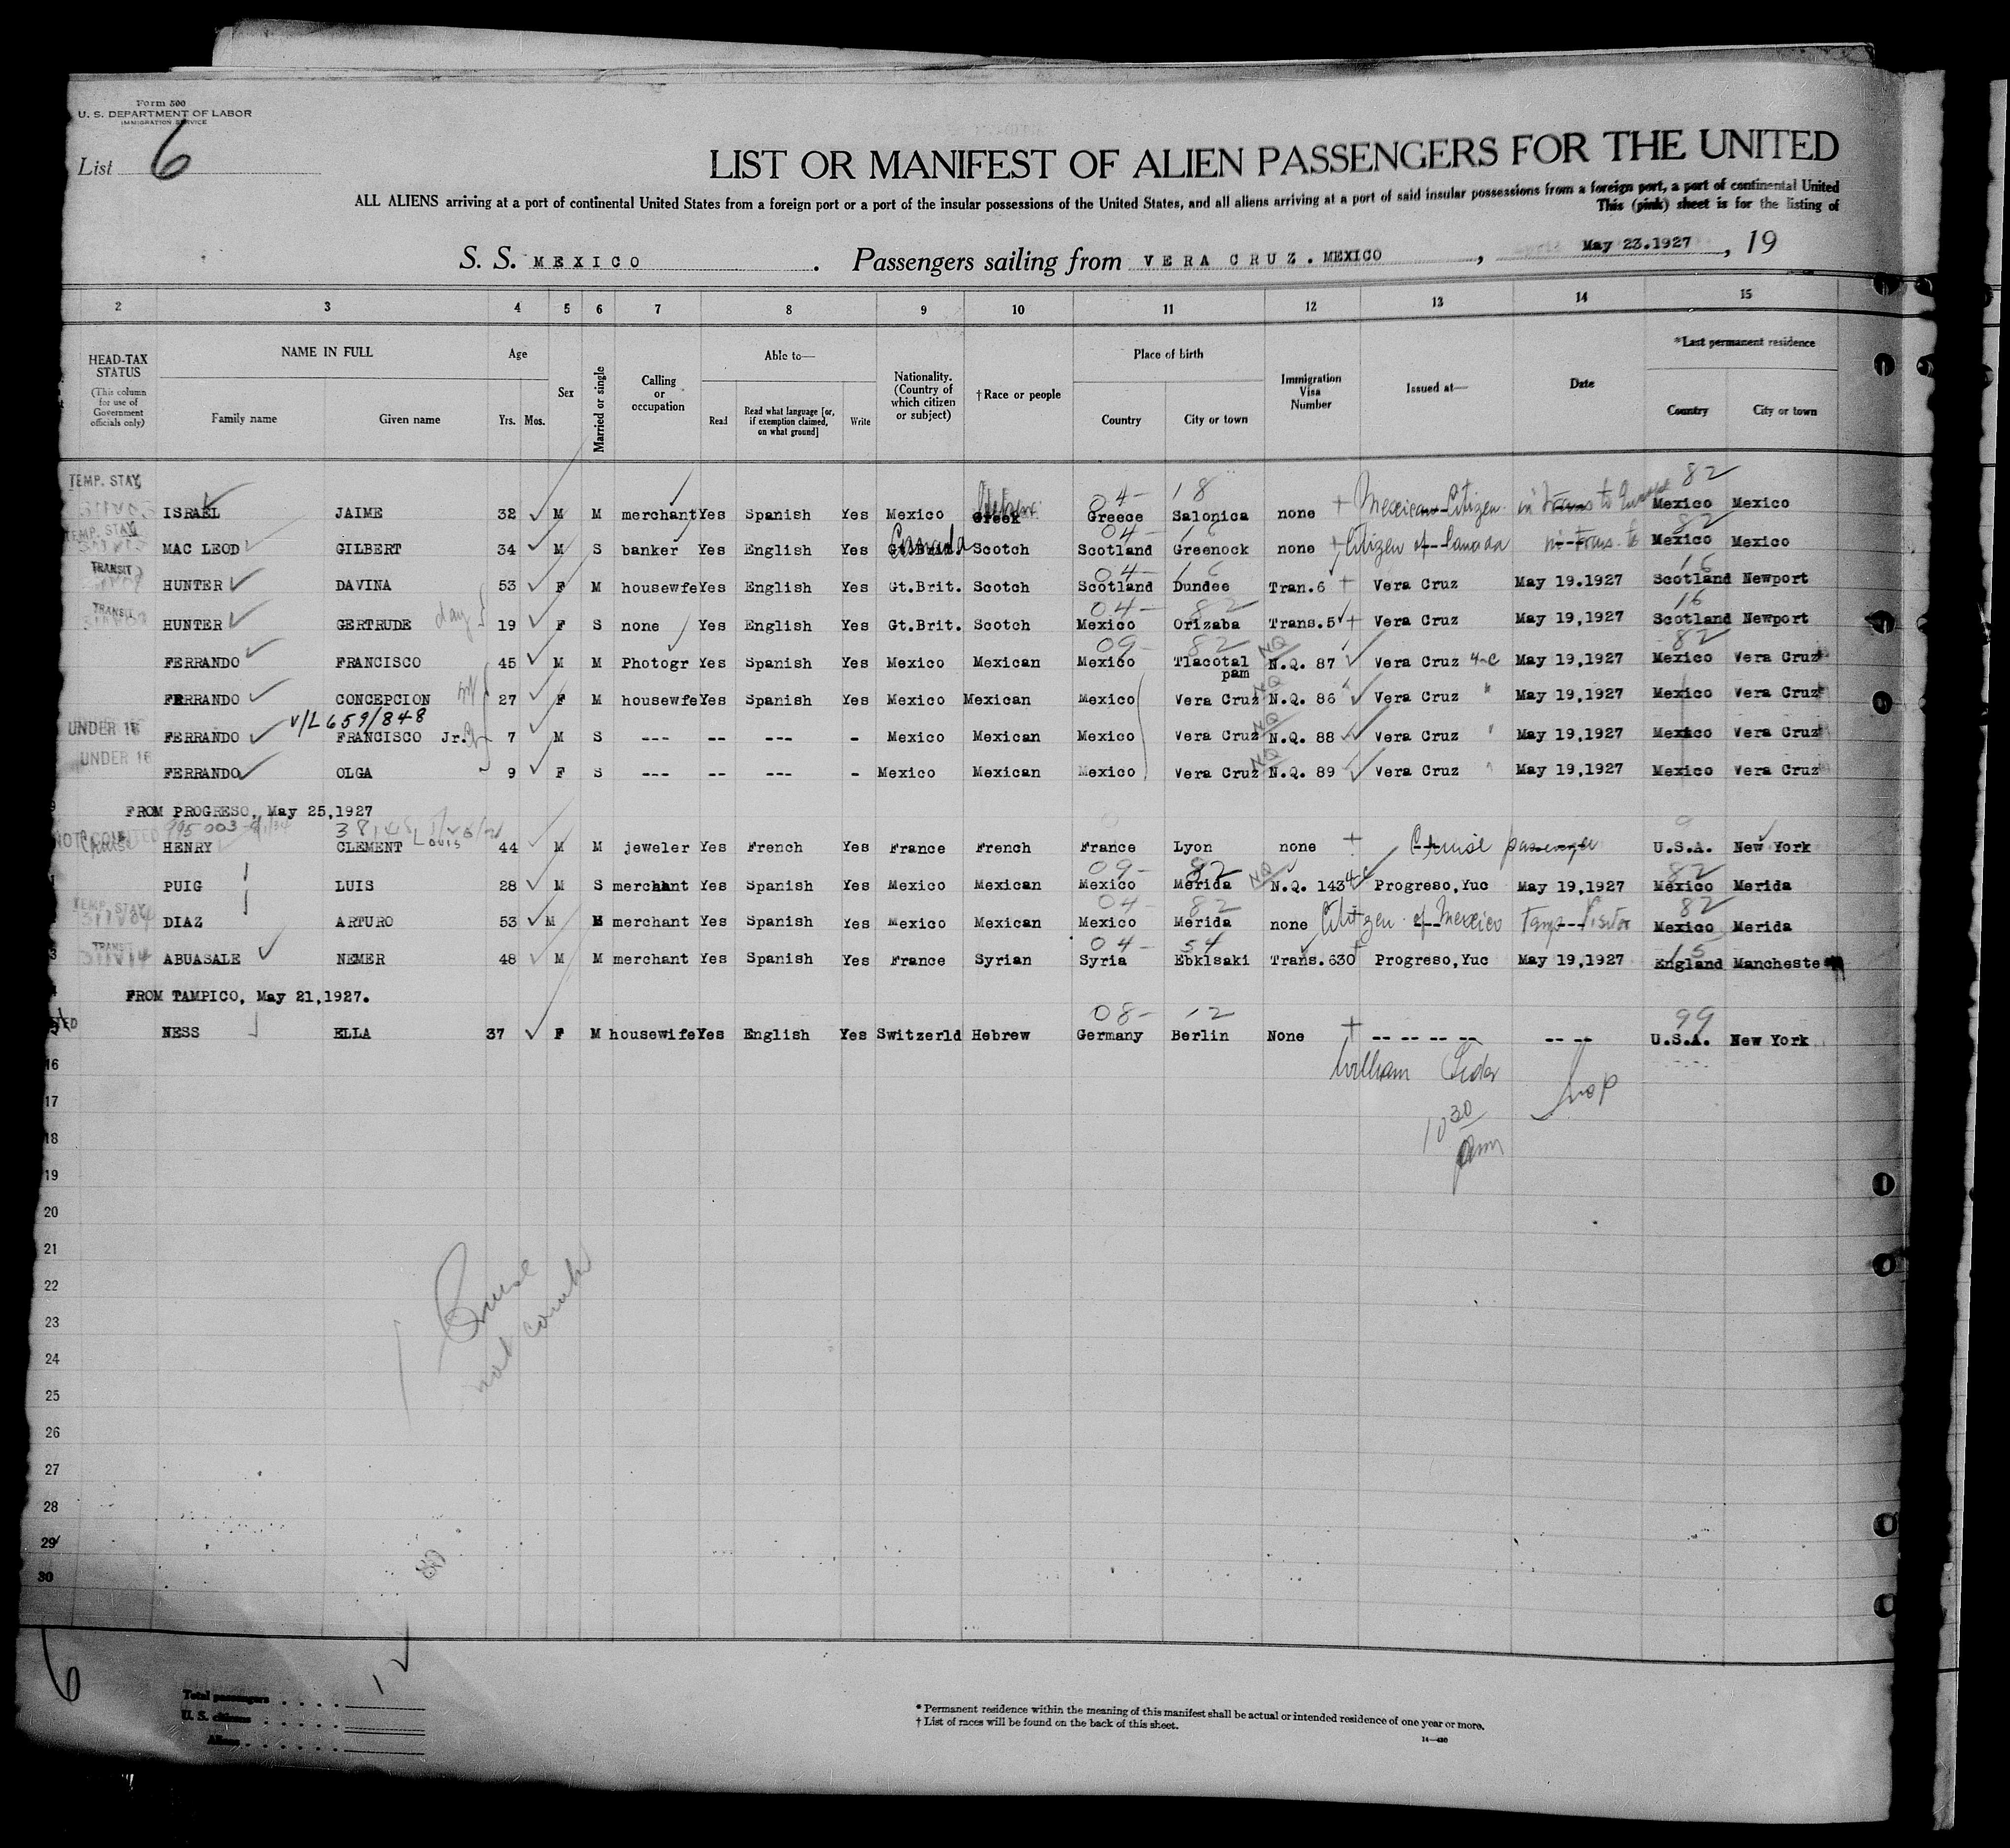 Form 500
U. S. DEPARTMENT OF LABOR
IMMIGRATION SERVICE
List 6
LIST OR MANIFEST OF ALIEN PASSENGERS FOR THE UNITED
ALL ALIENS arriving at a port of continental United States from a foreign port or a port of the insular possessions of the United States, and all aliens arriving at a port of said insular possessions from a foreign port, a port of continental United
This (pink) sheet is for the listing of
S. S. MEXICO. Passengers sailing from VERA CRUZ. MEXICO, May 23.1927, 19
2 3 4 5 6 7 8 9 10 11 12 13 14 15
HEAD-TAX STATUS (This column for use of Government officials only) NAME IN FULL Family name Given name Age Yrs. Mos. Sex Married or single Calling or occupation Able to— Read Read what language [or, if exemption claimed, on what ground] Write Nationality. (Country of which citizen or subject) †Race or people Place of birth Country City or town Immigration Visa Number Issued at— Date *Last permanent residence Country City or town
TEMP. STAY 04- 18 82
ISRAEL JAIME 32 M M merchant Yes Spanish Yes Mexico Hebrew Greek Greece Salonica none Mexican Citizen in Trans to Europe Mexico Mexico
TEMP. STAY Canada 04- 16 82
MAC LEOD GILBERT 34 M S banker Yes English Yes Gt.Brit. Scotch Scotland Greenock none Citizen of Canada in Trans. to Mexico Mexico
TRANSIT 04- 16 16
HUNTER DAVINA 53 F M housewfe Yes English Yes Gt.Brit. Scotch Scotland Dundee Tran.6 Vera Cruz May 19.1927 Scotland Newport
TRANSIT 04- 82 16
HUNTER GERTRUDE 19 F S none Yes English Yes Gt.Brit. Scotch Mexico Orizaba Trans.5 Vera Cruz May 19,1927 Scotland Newport
09- 82 NQ 82
FERRANDO FRANCISCO 45 M M Photogr Yes Spanish Yes Mexico Mexican Mexico Tlacotal pam N.Q. 87 Vera Cruz 4-C May 19,1927 Mexico Vera Cruz
FERRANDO CONCEPCION 27 F M housewfe Yes Spanish Yes Mexico Mexican Mexico Vera Cruz NQ N.Q. 86 Vera Cruz " May 19,1927 Mexico Vera Cruz
V/L 659/848
UNDER 16 FERRANDO FRANCISCO Jr. 7 M S --- -- --- - Mexico Mexican Mexico Vera Cruz NQ N.Q. 88 Vera Cruz " May 19,1927 Mexico Vera Cruz
UNDER 16 FERRANDO OLGA 9 F S --- -- --- - Mexico Mexican Mexico Vera Cruz NQ N.Q. 89 Vera Cruz " May 19,1927 Mexico Vera Cruz
FROM PROGRESO, May 25,1927
HENRY CLEMENT Louis 44 M M jeweler Yes French Yes France French France Lyon none Cruise passenger U.S.A. New York
09- 82 NQ 82
PUIG LUIS 28 M S merchant Yes Spanish Yes Mexico Mexican Mexico Merida N.Q. 143 4-C Progreso,Yuc May 19,1927 Mexico Merida
TEMP. STAY 04- 82 82
DIAZ ARTURO 53 M M merchant Yes Spanish Yes Mexico Mexican Mexico Merida none Citizen of Mexico Temp Visitor Mexico Merida
TRANSIT 04- 54 15
ABUASALE NEMER 48 M M merchant Yes Spanish Yes France Syrian Syria Ebkisaki Trans.630 Progreso,Yuc May 19,1927 England Mancheste
FROM TAMPICO, May 21,1927.
08- 12 99
NESS ELLA 37 F M housewife Yes English Yes Switzerld Hebrew Germany Berlin None -- -- -- -- -- -- U.S.A. New York
16 William
17
10 30
18 pm
19
20
21
22 Cruise
23 not
24
25
26
27
28
29
30
6
Total passengers 12
U. S. citizens
Aliens
* Permanent residence within the meaning of this manifest shall be actual or intended residence of one year or more.
† List of races will be found on the back of this sheet.
14—430